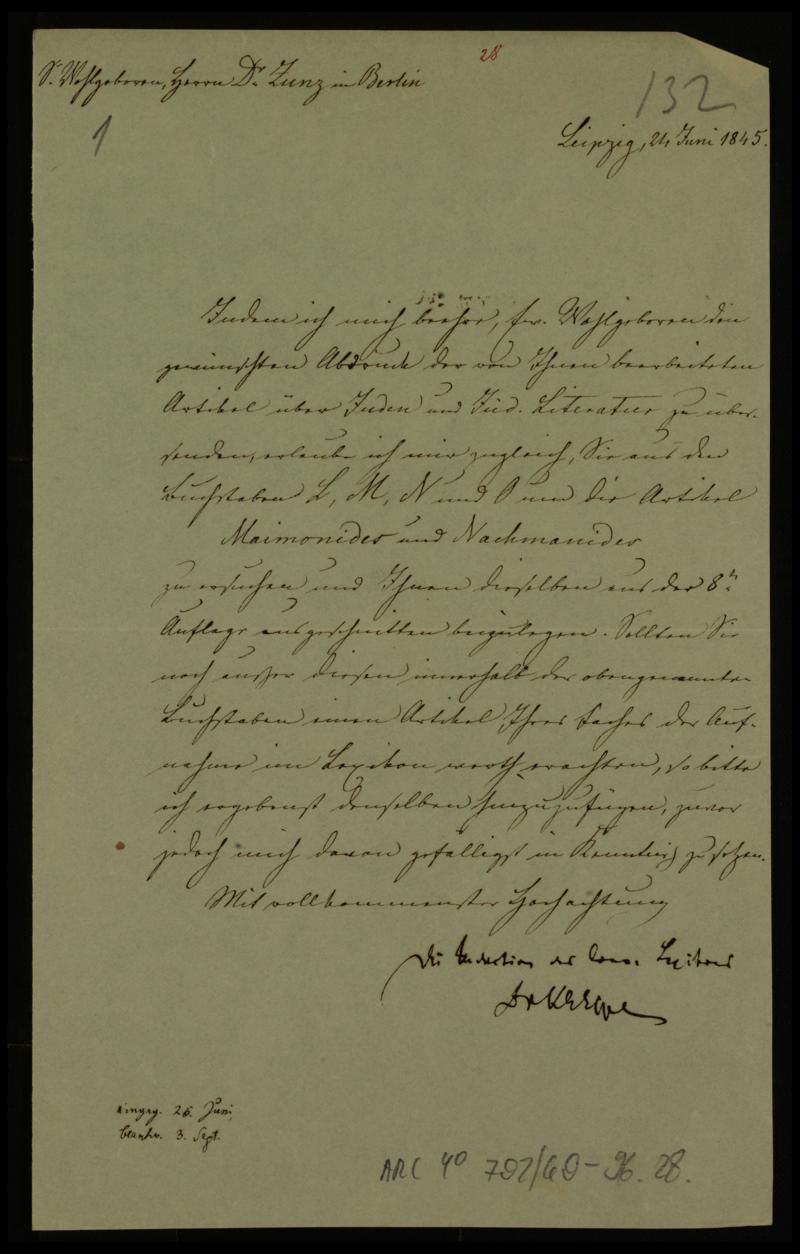 28
Sr. Wohlgeboren, Herrn Dr. Zunz in Berlin
132
1
Leipzig, 24 Juni 1845.
Indem ich mich beehre, Ew. Wohlgeboren den
gewünschten Abdruck der von Ihnen bearbeiteten
Artikel über Juden und Jüd. Literatur zu über-
senden, erlaube ich mir zugleich, Sie aus den
Buchstaben L, M, N und O um die Artikel
Maimonides und Nachmanides
zu ersuchen und Ihnen dieselben aus der 8n
Auflage ausgeschnitten beizulegen. Sollten Sie
noch außer diesen innerhalb der obengenannten
Buchstaben einen Artikel Ihres Faches der Auf-
nahme im Lexikon werth erachten, so bitte
ich ergebenst denselben hinzuzufügen, zuvor
jedoch mich davon gefälligst in Kenntniß zu setzen.
Mit vollkommenster Hochachtung
Die Redaction des Conv. Lexikons
Dr
eingeg. 26. Juni
beantw. 3. Sept.
ARC 4° 792/G9-96.28.